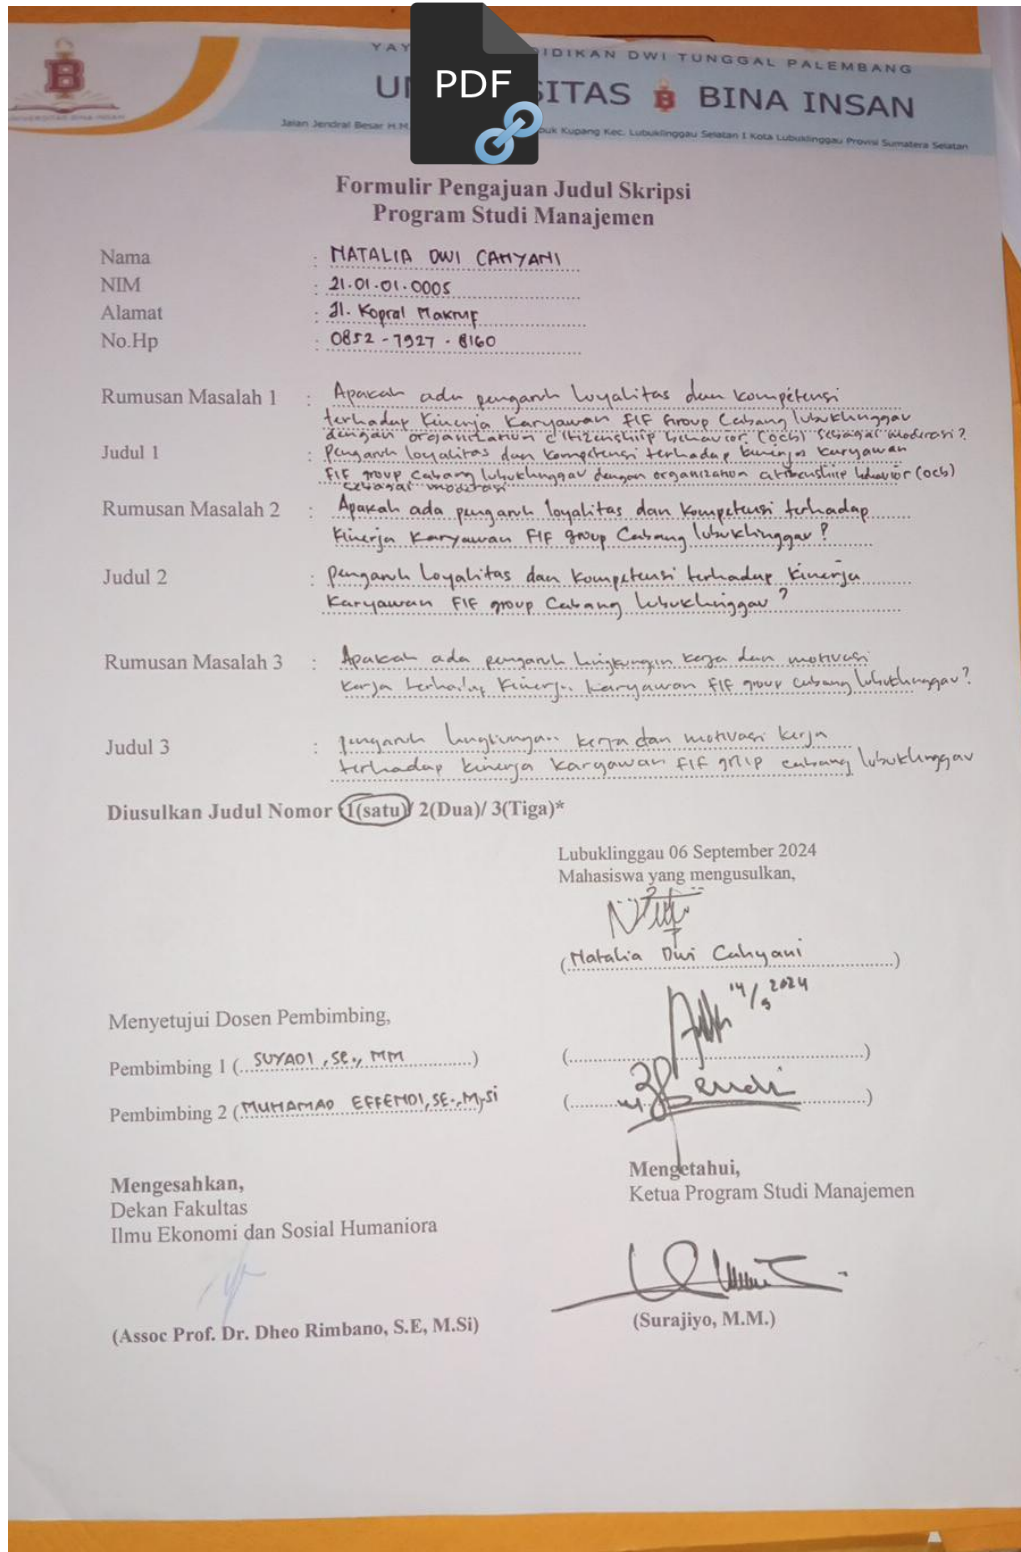 YAY DIDIKAN DWI TUNGGAL PALEMBANG
PDF
UN SITAS B BINA INSAN
Jalan Jendral Besar H.M. buk Kupang Kec. Lubuklinggau Selatan I Kota Lubuklinggau Provisi Sumatera Selatan
Formulir Pengajuan Judul Skripsi
Program Studi Manajemen
Nama : NATALIA DWI CAHYANI
NIM : 21.01.01.0005
Alamat : Jl. Kopral Makruf
No.Hp : 0852 - 7927 - 8160
Rumusan Masalah 1 : Apakah ada pengaruh loyalitas dan kompetensi
terhadap kinerja karyawan FIF Group Cabang lubuklinggau
dengan organization citizenship behavior (ocb) sebagai moderasi?
Judul 1 : Pengaruh loyalitas dan kompetensi terhadap kinerja karyawan
FIF group Cabang lubuklinggau dengan organization citizenship behavior (ocb)
sebagai moderasi
Rumusan Masalah 2 : Apakah ada pengaruh loyalitas dan kompetensi terhadap
kinerja karyawan FIF group Cabang lubuklinggau?
Judul 2 : Pengaruh Loyalitas dan kompetensi terhadap kinerja
karyawan FIF group Cabang lubuklinggau?
Rumusan Masalah 3 : Apakah ada pengaruh lingkungan kerja dan motivasi
kerja terhadap kinerja karyawan FIF group cabang lubuklinggau?
Judul 3 : pengaruh lingkungan kerja dan motivasi kerja
terhadap kinerja karyawan FIF grup cabang lubuklinggau
Diusulkan Judul Nomor 1(satu)/ 2(Dua)/ 3(Tiga)*
Lubuklinggau 06 September 2024
Mahasiswa yang mengusulkan,
(Natalia Dwi Cahyani)
14/9 2024
Menyetujui Dosen Pembimbing,
Pembimbing 1 (SUYADI, SE., MM) (....)
Pembimbing 2 (MUHAMAD EFFENDI, SE., M,Si (....)
Mengesahkan,
Dekan Fakultas
Ilmu Ekonomi dan Sosial Humaniora
Mengetahui,
Ketua Program Studi Manajemen
(Assoc Prof. Dr. Dheo Rimbano, S.E, M.Si)
(Surajiyo, M.M.)